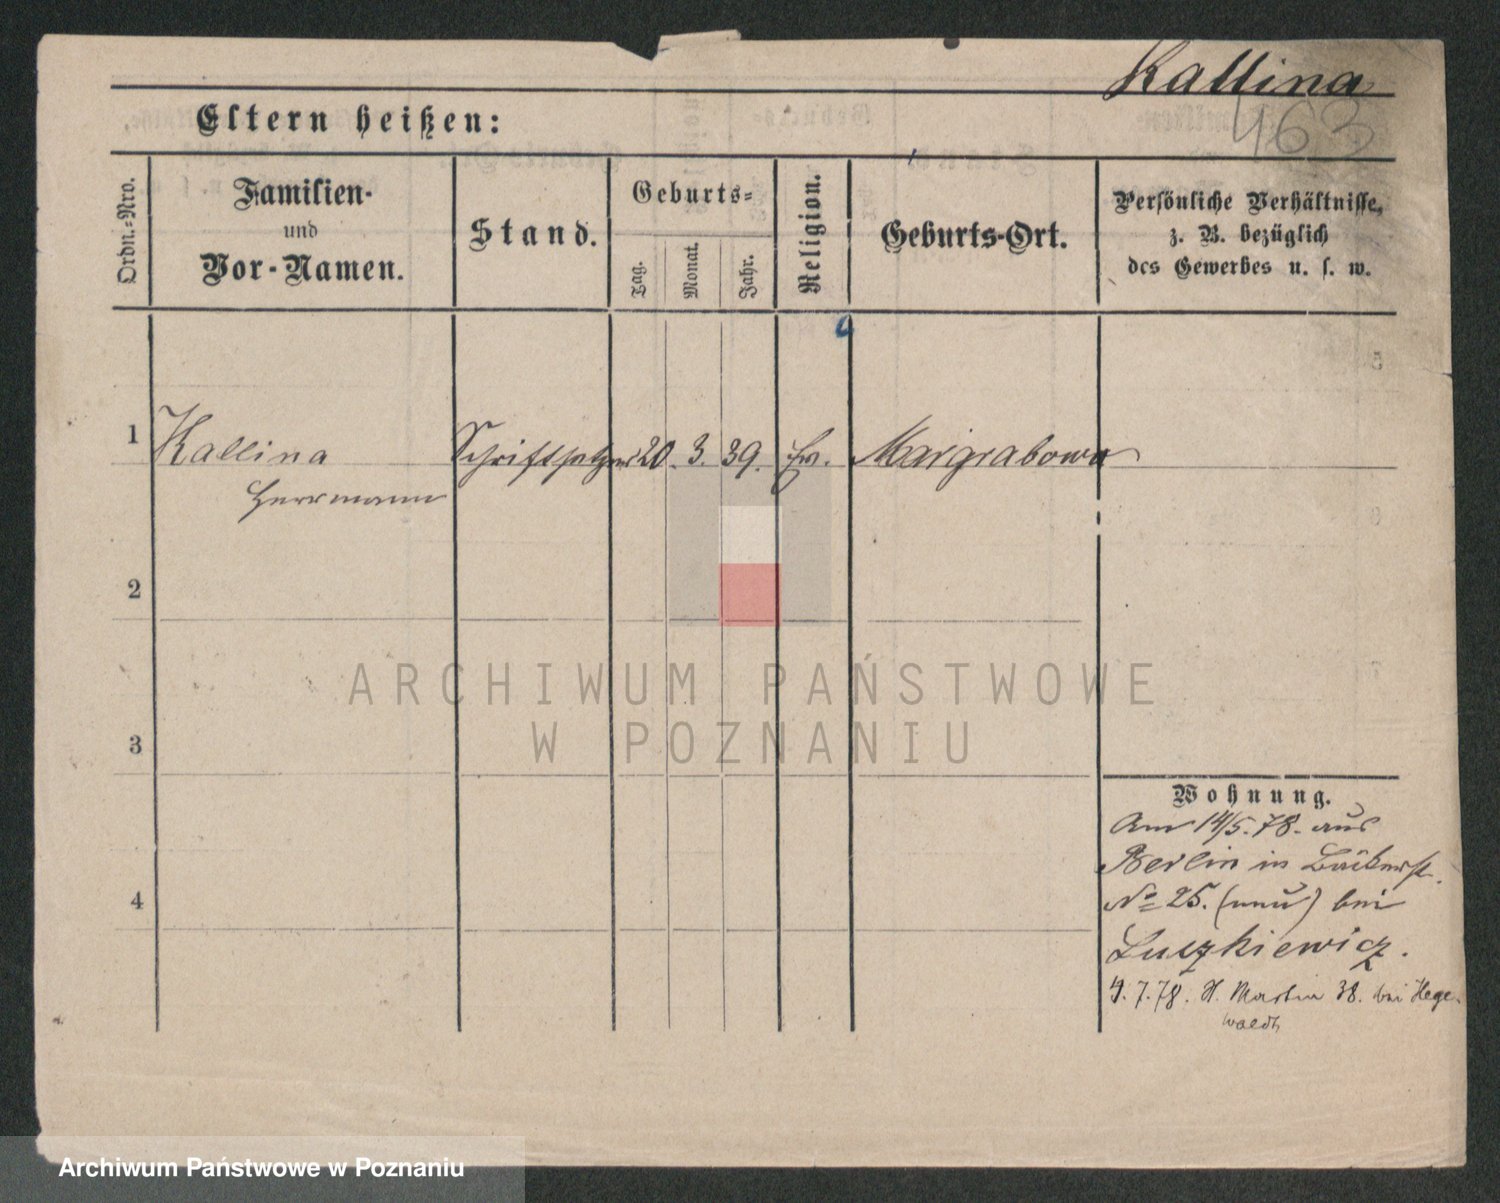 Kallina
463
Eltern heißen:
Ordn.=Nro.
Familien-
und
Vor-Namen.
Stand.
Geburts=
Tag.
Monat.
Jahr.
Religion.
Geburts-Ort.
Persönliche Verhältnisse,
z. B. bezüglich
des Gewerbes u. s. w.
1
Kallina
Herrmann
Schriftsetzer
20. 3. 39. Ev. Margrabowa
2
3
4
ARCHIWUM PAŃSTWOWE
W POZNANIU
Wohnung.
Am 14/5. 78. aus
Berlin in Bäckerst.
No 25. (neu) bei
Luszkiewicz.
4. 7. 78. St. Martin 38. bei Hege-
waldt
Archiwum Państwowe w Poznaniu